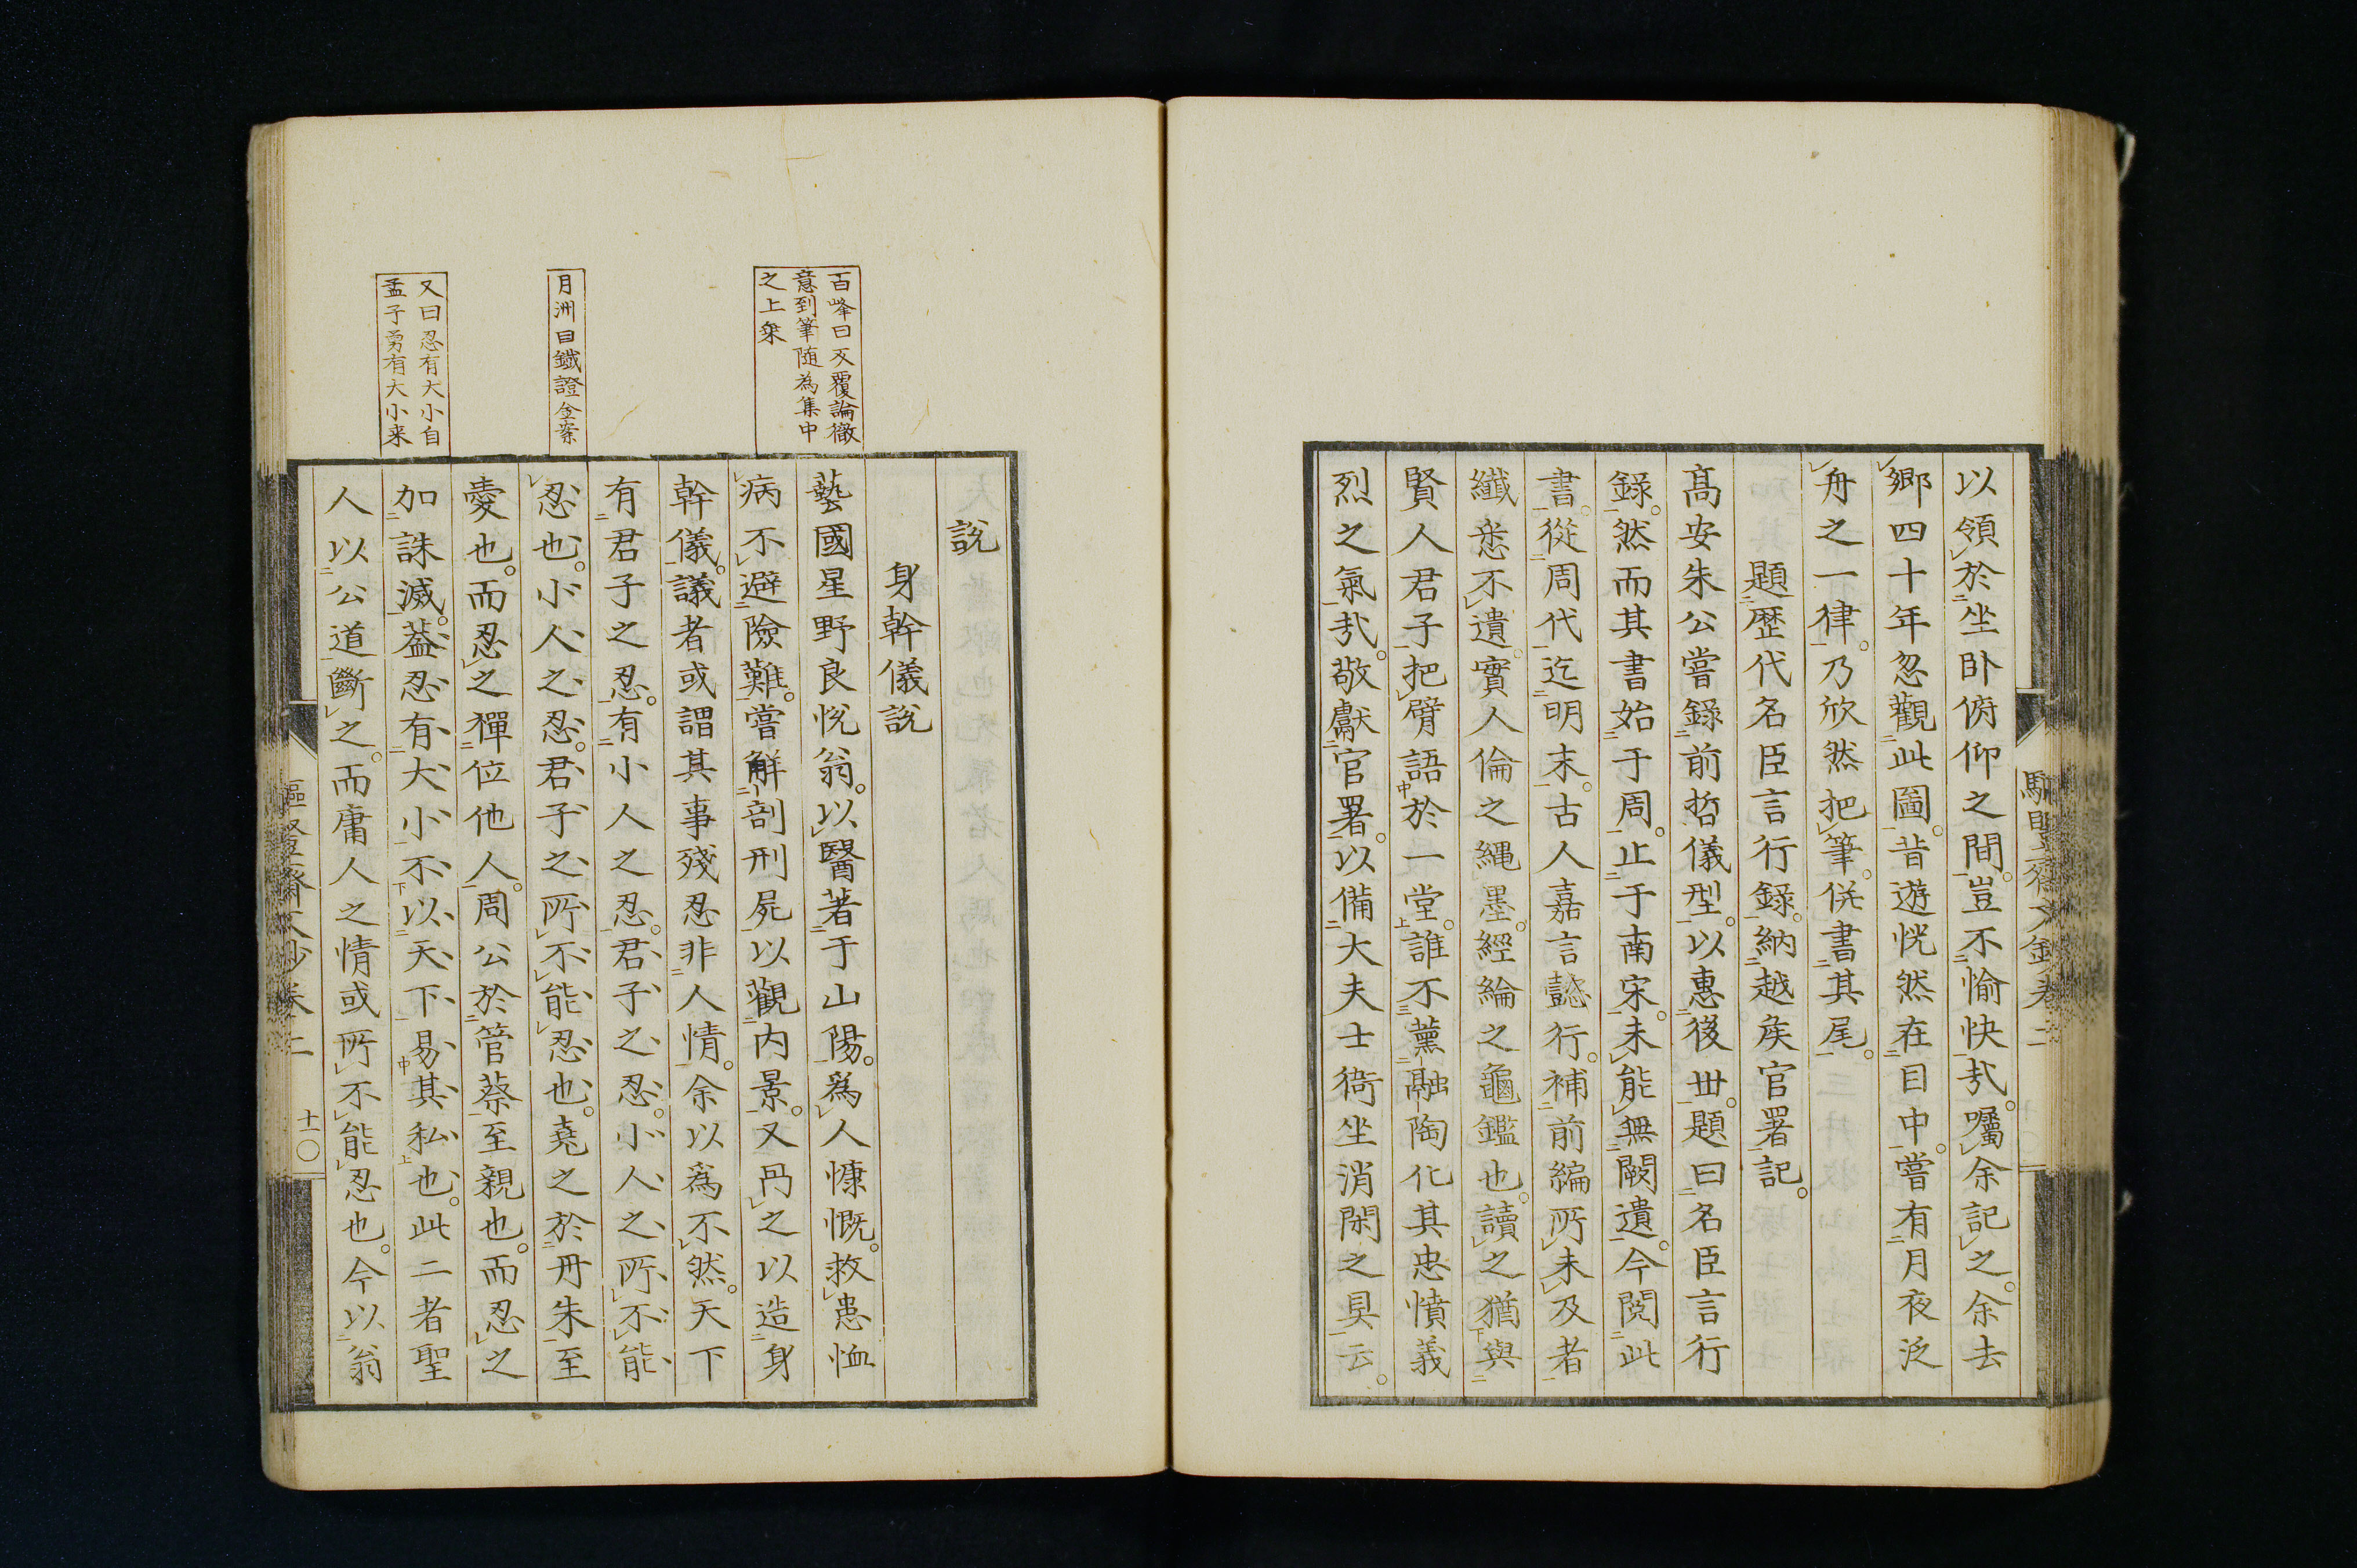 以領於坐臥俯仰之間。豈不愉快㢤。囑余記之。余去
鄉四十年忽觀此圖。昔遊恍然在目中。嘗有月夜泛
舟之一律。乃欣然把筆。併書其尾。
題歴代名臣言行錄。納越矦官署記。
髙安朱公嘗錄前哲儀型。以惠後丗。題曰名臣言行
錄。然而其書始于周。止于南宋。未能無闕遺。今閲此
書。從周代迄明末。古人嘉言懿行。補前編所未及者
纎悉不遺。實人倫之縄墨。經綸之龜鑑也。讀之猶與
賢人君子把臂語於一堂。誰不薰融陶化其忠憤義
烈之氣㢤。敬獻官署。以備大夫士衙坐消閑之具云。
說
身幹儀說
藝國星野良悅翁。以醫著于山陽。爲人慷慨。救患恤
病不避險難。嘗解剖刑屍以觀内景。又冎之以造身
幹儀。議者或謂其事殘忍非人情。余以爲不然。天下
有君子之忍。有小人之忍。君子之忍。小人之所不能
忍也。小人之忍。君子之所不能忍也。堯之於丹朱至
愛也。而忍之禪位他人。周公於管蔡至親也。而忍之
加誅滅。葢忍有大小不以天下易其私也。此二者聖
人以公道斷之。而庸人之情或所不能忍也。今以翁
百峰曰反覆論徹
意到筆随為集中
之上乘
月洲曰鐵證金案
又曰忍有大小自
孟子勇有大小来
卷二
十一〇